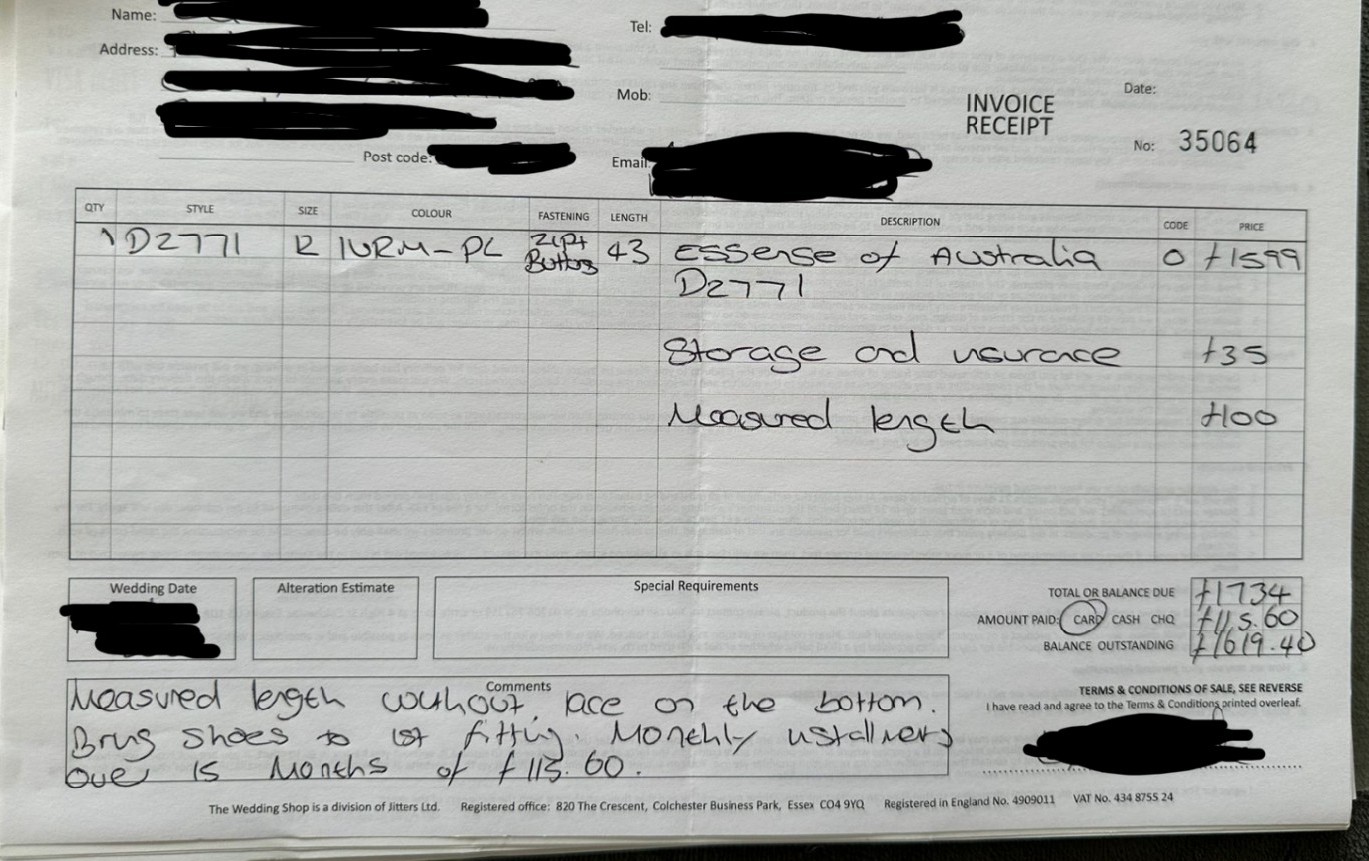 Name:
Tel:
Address:
Mob:
Date:
INVOICE
RECEIPT
No: 35064
Post code:
Email:
QTY STYLE SIZE COLOUR FASTENING LENGTH DESCRIPTION CODE PRICE
1 D2771 12 IVRM-PL Zip+ 43 Essense of Australia 0 £1599
Buttons D2771
Storage and insurance £35
Measured length £100
Wedding Date Alteration Estimate Special Requirements
TOTAL OR BALANCE DUE £1734
AMOUNT PAID: CARD CASH CHQ £115.60
BALANCE OUTSTANDING £1619.40
Comments
Measured length without lace on the bottom.
Bring shoes to 1st fitting. Monthly installments
over 15 Months of £115.60.
TERMS & CONDITIONS OF SALE, SEE REVERSE
I have read and agree to the Terms & Conditions printed overleaf.
The Wedding Shop is a division of Jitters Ltd. Registered office: 820 The Crescent, Colchester Business Park, Essex CO4 9YQ Registered in England No. 4909011 VAT No. 434 8755 24